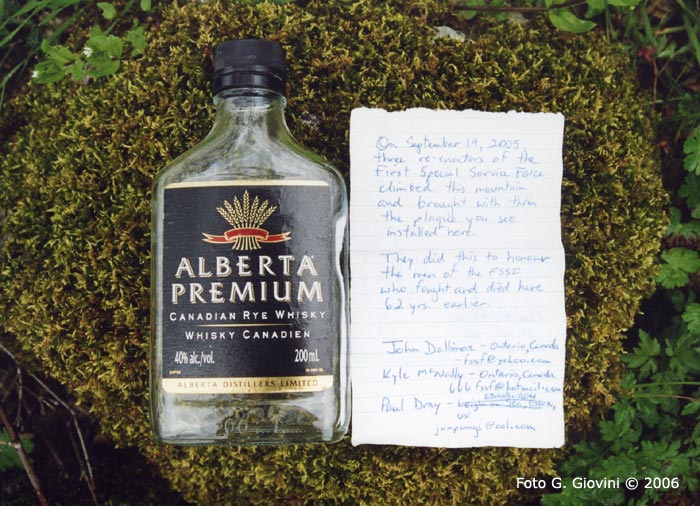 ALBERTA
PREMIUM
CANADIAN RYE WHISKY
WHISKY CANADIEN
40% alc./vol. 200 mL
ALBERTA DISTILLERS LIMITED
On September 19, 2005,
three re-enactors of the
First Special Service Force
climbed this mountain
and brought with them
the plaque you see
installed here.
They did this to honour
the men of the FSSF
who fought and died here
62 yrs. earlier.
John Dallimore - Ontario, Canada
fssf@yahoo.com
Kyle McNally - Ontario, Canada
666fssf@hotmail.com
EDINBURGH
Paul Dray -
UK
jumpwings@aol.com
Foto G. Giovini © 2006